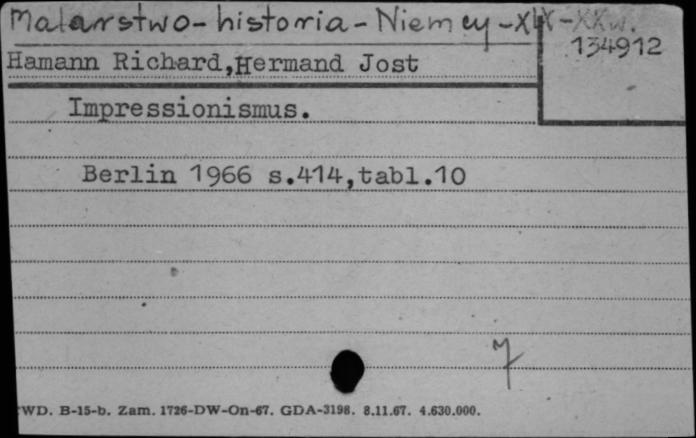 Malarstwo-historia-Niemcy-XIX-XXw.
134912
Hamann Richard,Hermand Jost
Impressionismus.
Berlin 1966 s.414,tabl.10
WD. B-15-b. Zam. 1726-DW-On-67. GDA-3198. 8.11.67. 4.630.000.